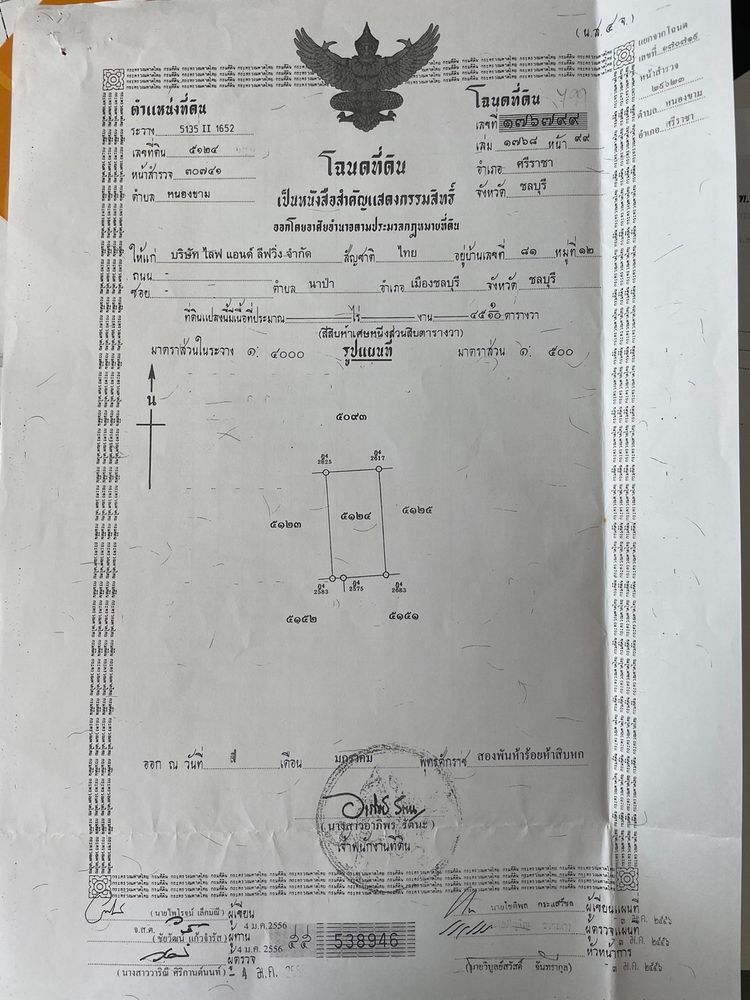 (น.ส.๔ จ.)
แยกจากโฉนด
เลขที่
หน้าสำรวจ
๒๔๖๒๓
ตำบล หนองขาม
อำเภอ ศรีราชา
ตำแหน่งที่ดิน
ระวาง 5135 II 1652
เลขที่ดิน ๕๑๒๔
หน้าสำรวจ ๓๐๗๔๑
ตำบล หนองขาม
โฉนดที่ดิน
เลขที่ ๑๗๖๗๙๙
เล่ม ๑๗๖๘ หน้า ๙๙
อำเภอ ศรีราชา
จังหวัด ชลบุรี
โฉนดที่ดิน
เป็นหนังสือสำคัญแสดงกรรมสิทธิ์
ออกโดยอาศัยอำนาจตามประมวลกฎหมายที่ดิน
ให้แก่ บริษัท ไลฟ แอนด์ ลีฟวิ่ง จำกัด สัญชาติ ไทย อยู่บ้านเลขที่ ๘๑ หมู่ที่ ๑๒
ถนน -
ซอย - ตำบล นาป่า อำเภอ เมืองชลบุรี จังหวัด ชลบุรี
ที่ดินแปลงนี้มีเนื้อที่ประมาณ ไร่ งาน ๔๕ ๑/๑๐ ตารางวา
(สี่สิบห้าเศษหนึ่งส่วนสิบตารางวา)
มาตราส่วนในระวาง ๑: ๔๐๐๐ รูปแผนที่ มาตราส่วน ๑: ๕๐๐
น
๕๐๙๓
ฉ4 2625
ฉ4 2617
๕๑๒๓
๕๑๒๔
๕๑๒๕
ฉ4 2583
ฉ4 2575
ฉ4 2663
๕๑๕๒
๕๑๕๑
ออก ณ วันที่ ๔ เดือน มกราคม พุทธศักราช สองพันห้าร้อยห้าสิบหก
(นางสาวอาภิพร รัตนะ)
เจ้าพนักงานที่ดิน
(นายไพโรจน์ เล็กมณี) ผู้เขียน
จ.ส.ต. 4 ม.ค.2556
(ชัยวัฒน์ แก้วจำรัส) ผู้ทาน
4 ม.ค.2556
ผู้ตรวจ
(นางสาววาริณี ศิริกานต์นนท์) - 4 ม.ค.
538946
นายโชติพล กระแสร์ชล ผู้เขียนแผนที่
๓ ม.ค. ๒๕๕๖
ผู้ตรวจแผนที่
๓ ม.ค. ๒๕๕๖
หัวหน้าการ
(นายวิบูลย์สวัสดิ์ จันทรากุล) ๓ ม.ค. ๒๕๕๖